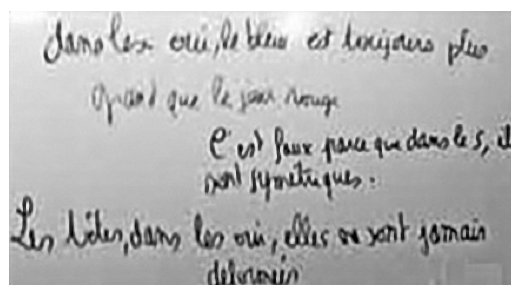 dans les oui, le bleu est toujours plus
grand que le jour rouge
C'est faux parce que dans le 5, il
sont symetriques.
Les têtes, dans les oui, elles ne sont jamais
deformés